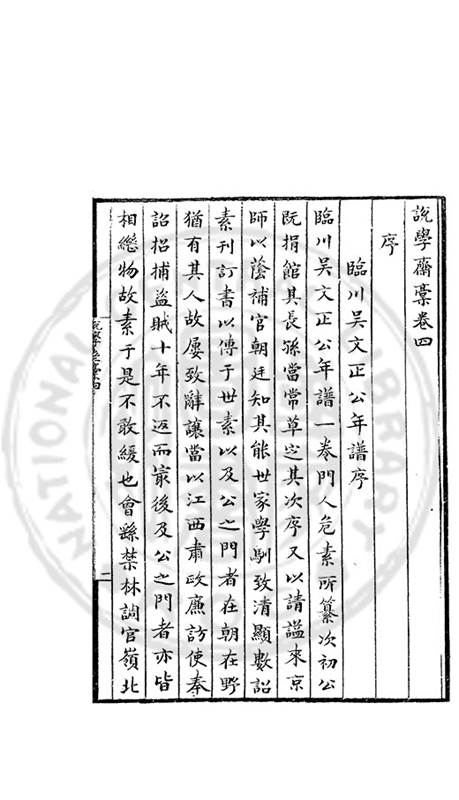 說學齋稾卷四
序
臨川吳文正公年譜序
臨川吳文正公年譜一卷門人危素所纂次初公
既捐館其長孫當常草定其次序又以請諡來京
師以蔭補官朝廷知其能世家學馴致清顯數詔
素刊訂書以傳于世素以及公之門者在朝在野
猶有其人故屢致辭讓當以江西肅政廉訪使奉
詔招捕盜賊十年不返而最後及公之門者亦皆
相繼物故素于是不敢緩也會繇禁林調官嶺北
二
NATIONAL LIBRARY